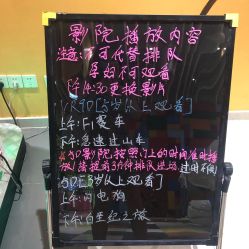 影院播放内容
注意:不可代替排队
孕妇不可观看
下午14:30更换影片
VR9D[5岁以上观看]
上午:F1赛车
下午:急速过山车
4.5D影院按照门上的时间准时播
放(请提前3分钟排队进场 过时不候)
5D[5岁以上观看]
上午:闪电狗
下午:白垩纪之旅